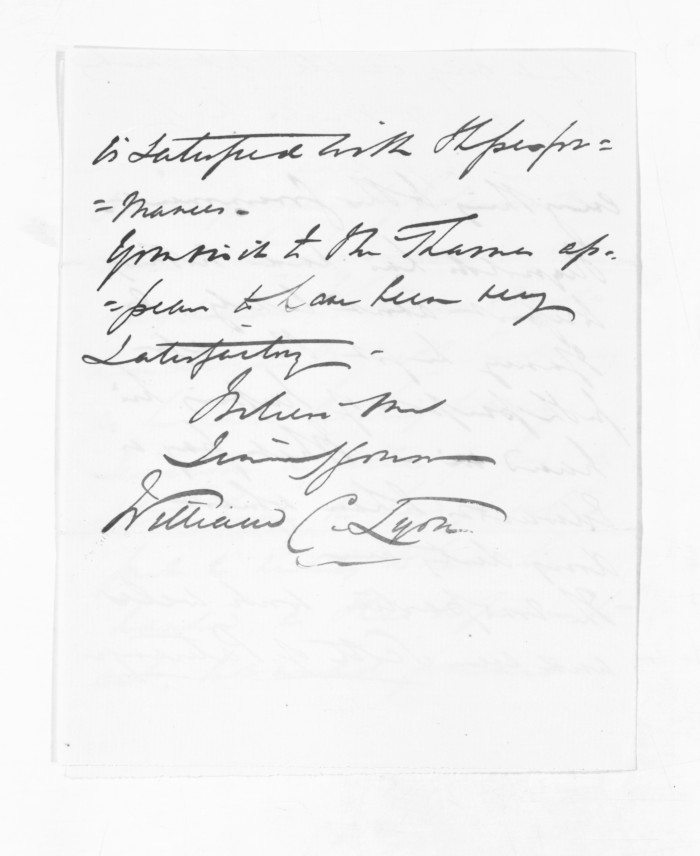 is satisfied with the perfor=
=mances.
Your visit to the Thames ap=
=pears to have been very
satisfactory -
Believe me
Sincerely yours
William C. Lyon